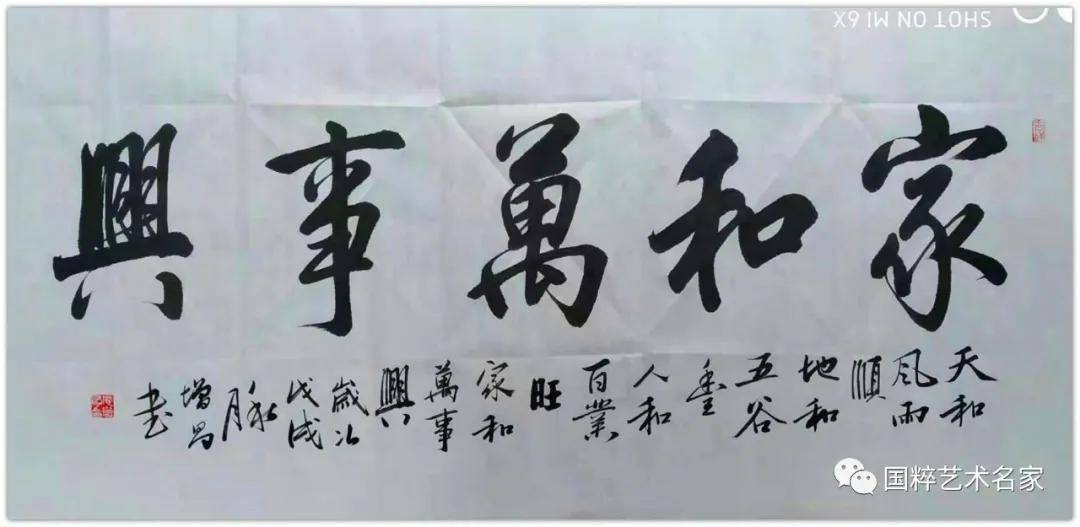 SHOT ON MI 6X
家和萬事興
天和
风雨
順
地和
五谷
豐
人和
百業
旺
家和
萬事
興
歲次
戊戌
秋月
增昌
书
国粹艺术名家